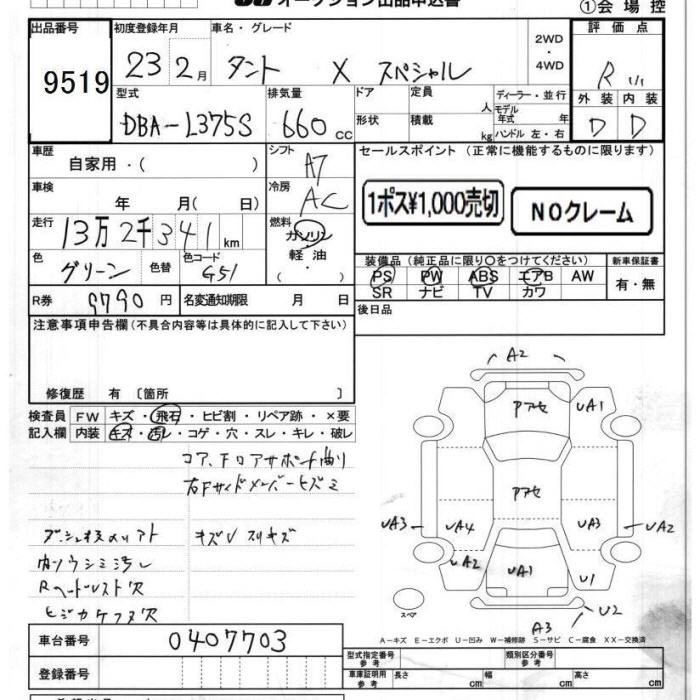 オークション出品申込書
①会場控
出品番号 初度登録年月 車名・グレード 2WD・4WD 評価点
9519 23 2月 タント X スペシャル R
型式 排気量 ドア 定員 人 ディーラー・並行 外装 内装
DBA-L375S 660 cc 形状 積載 kg モデル年式 年 ハンドル 左・右 D D
車歴 シフト セールスポイント (正常に機能するものに限ります)
自家用・( ) A7
車検 冷房 1ポス¥1,000売切 NOクレーム
年 月( 日) AC
走行 燃料
13万2千341km ガソリン・軽油・( )
色 色替 色コード 装備品 (純正品に限り○をつけてください) 新車保証書
グリーン G51 PS PW ABS エアB AW 有・無
SR ナビ TV カワ
R券 9790円 名変通知期限 月 日 後日品
注意事項申告欄 (不具合内容等は具体的に記入して下さい)
修復歴 有 〔箇所 〕
検査員 FW キズ・飛石・ヒビ割・リペア跡・×要
記入欄 内装 キズ・汚レ・コゲ・穴・スレ・キレ・破レ
コア、Fロアサポート曲り
右Fサイドメンバーヒズミ
キズU スリキズ
Rヘッドレスト欠
A2
Pアセ UA1
Pアセ
UA3 UA4 UA3 UA2
UA2 UA1 U1
スペア A3 U2
A-キズ E-エクボ U-凹み W-補修跡 S-サビ C-腐食 XX-交換済
車台番号 0407703
登録番号
型式指定番号 参考 類別区分番号 参考
車庫証明用 参考 長さ cm 幅 cm 高さ cm